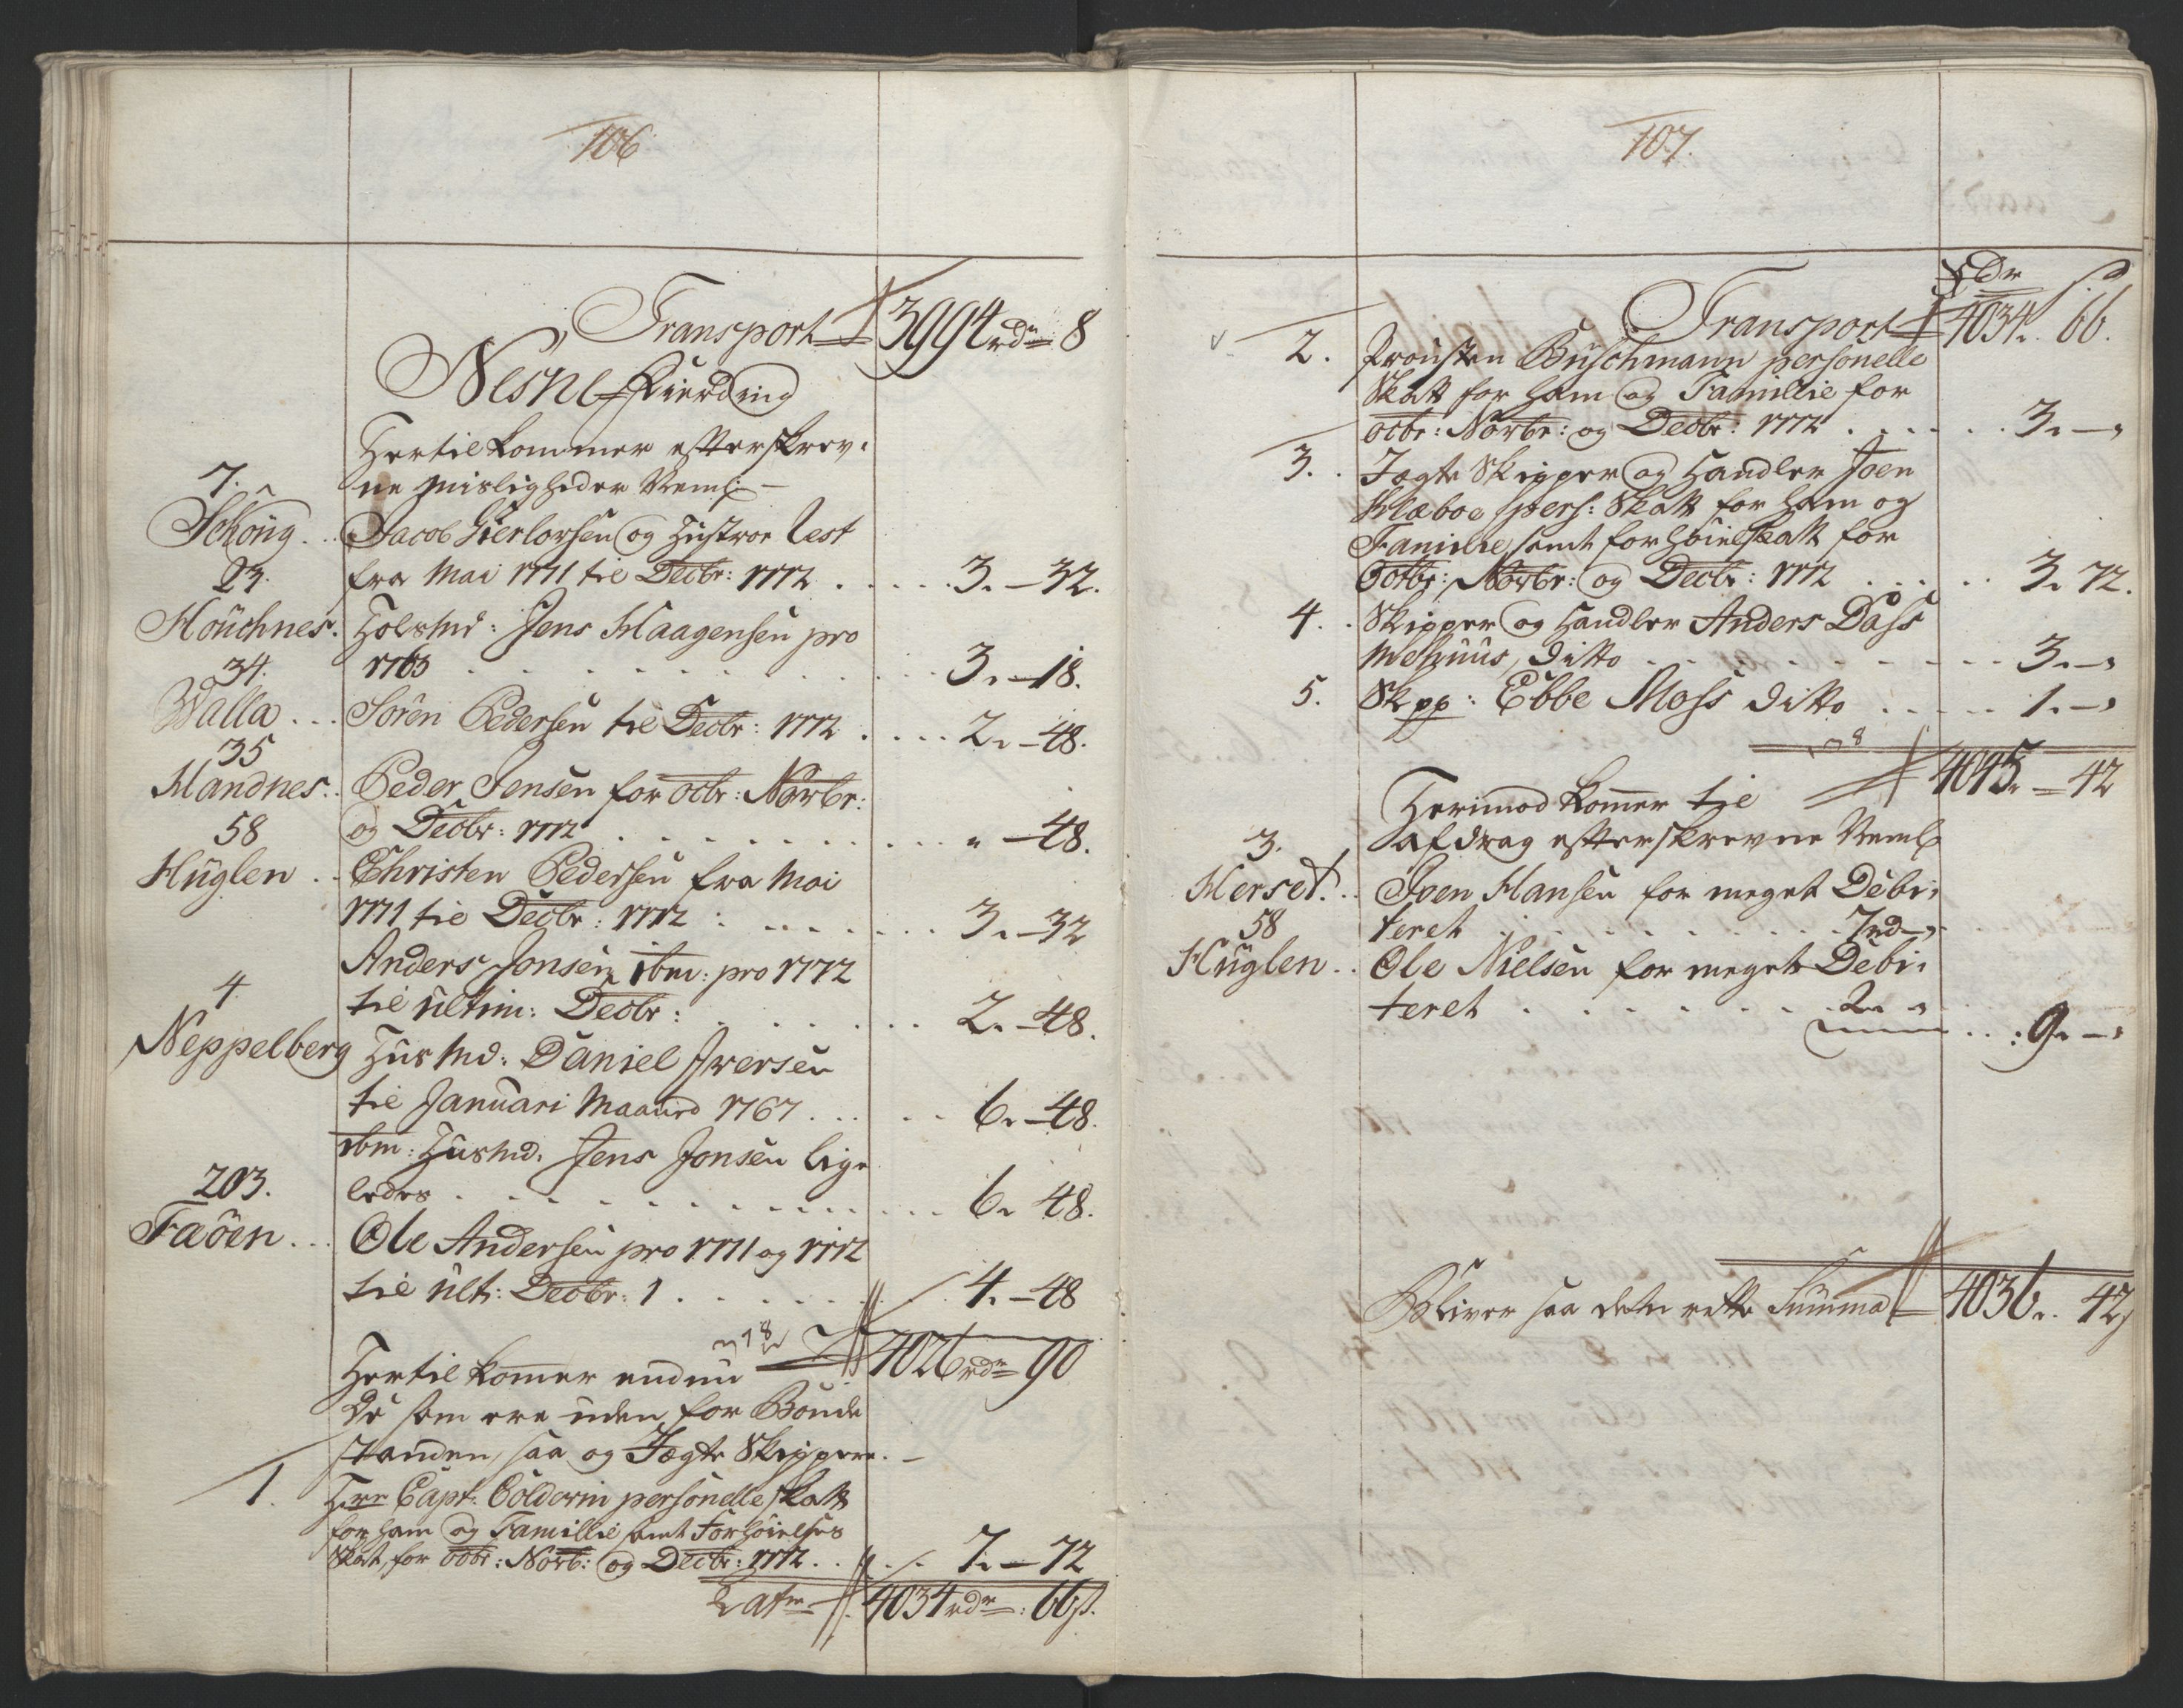 106
Transport 3994 rdr 8
Nesne Fierding
Hertil kommer efterskrev-
ne misligheder Neml:
7.
Schong . . Jacob Gierlorsen og Hustroe lest
fra Mai 1771 til Decbr: 1772 . . . . . 3. - 32.
23.
Houchnes. Holsmd: Jens Haagensen pro
1763 . . . . . . . . 3. - 18.
34.
Walla . . . Sören Pedersen til Decbr: 1772 . . . . 2. - 48.
35
Handnes . . Peder Jensen for Octbr: Novbr:
og Decbr: 1772 . . . . . . . . " - 48.
58
Huglen . . Christen Pedersen fra Mai
1771 til Decbr: 1772 : . . . . . . 3. - 32
Anders Jonsen ibm: pro 1772
til ultim: Decbr: . . . . . . . 2. - 48.
4
Neppelberg Husmd: Daniel Iversen
til Januari Maaned 1767 . . . . . 6. - 48.
ibm: Husmd: Jens Jonsen lige
ledes . . . . . . . . . . 6. 48.
203.
Faöen . . . Ole Andersen pro 1771 og 1772
til ult: Decbr: 1 . . . . . . . 4. - 48
4026 rdr 90
Hertil kommer endnu
De som ere uden for Bonde
standen, saa og Jægte Skippere. -
1. Hrr Capt: Coldevin personelle skatt
for ham og Familie samt Forhöielses
Skat, for Octbr: Novb: og Decbr: 1772 . . . . 7. - 72
Latr 4034 rdr: 66 s.
107.
Rdr s
Transport 4034. 66.
2. Prousten Buschmann personelle
Skatt for ham og Famillie for
Octbr: Novbr: og Decbr: 1772 . . . . . . 3. -
3. . Jægte Skipper og Handler Joen
Klæboe pers: Skatt for ham og
Familie, samt forhöielskatt for
Octbr: Novbr: og Decbr: 1772 . . . . . 3. 72.
4. . Skipper og Handler Anders Dass
ditto . . . . . . . . . 3. -
5. Skpp: Ebbe Moss ditto . . . . . 1. -
4045. - 42
Herimod kommer til
Afdrag efterskrevne Neml
3.
Herset. . . Iven Hansen for meget Debi-
teret . . . . . . . . . 7 rd -
58
Huglen . . Ole Nielsen for meget Debi-
teret . . . . . . . 2. "
. . : 9. -
Bliver saa den rette Summa 4036. . 42